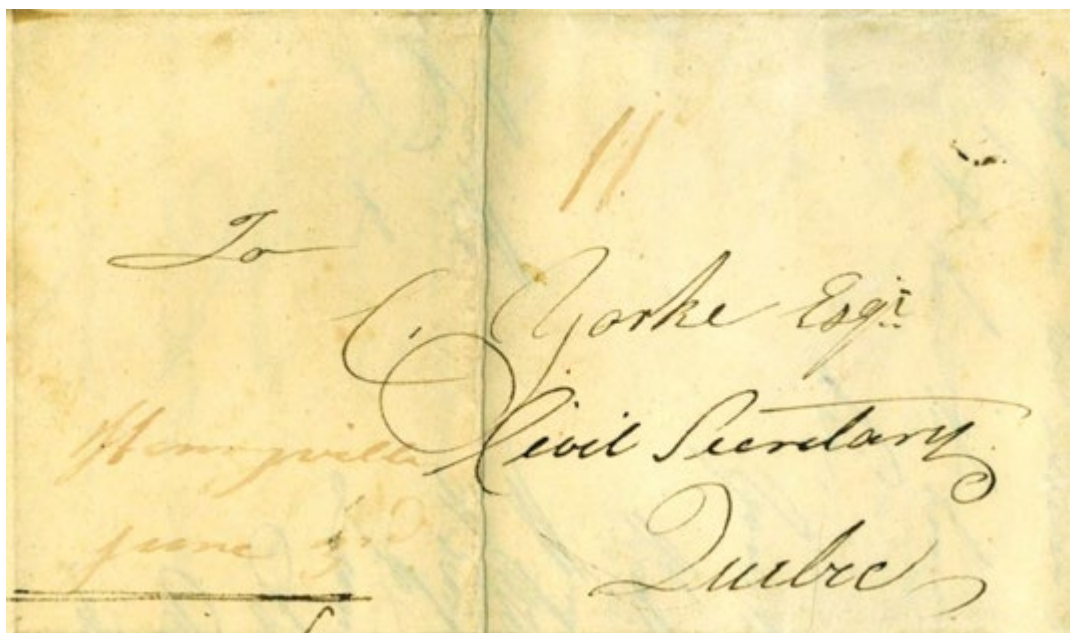 11
To
C. Yorke Esqr.
Civil Secretary
Quebec
Henryville
June 3rd